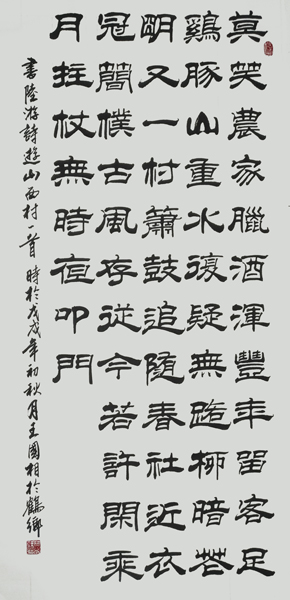 莫笑農家臘酒渾豐年留客足
鷄豚山重水複疑無路柳暗花
明又一村簫鼓追隨春社近衣
冠簡樸古風存從今若許閑乘
月拄杖無時夜叩門
書陸游詩遊山西村一首 時於戊戌年初秋月王國相於鶴鄉